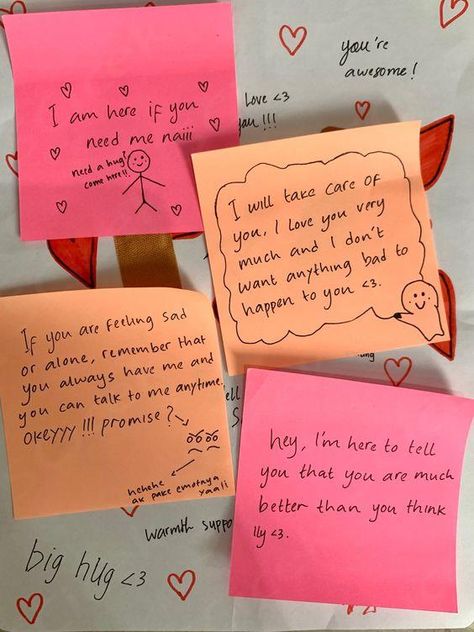 you're
awesome!
I am here if you
need me naiii
need a hug?
come here!!
Love <3
you!!!
I will take care of
you, I love you very
much and I don't
want anything bad to
happen to you <3.
If you are feeling sad
or alone, remember that
you always have me and
you can talk to me anytime.
OKEYYY !!! promise?
hehehe
ak pake emotaya
xaali
hey, I'm here to tell
you that you are much
better than you think
lly <3.
warmth
big hug <3